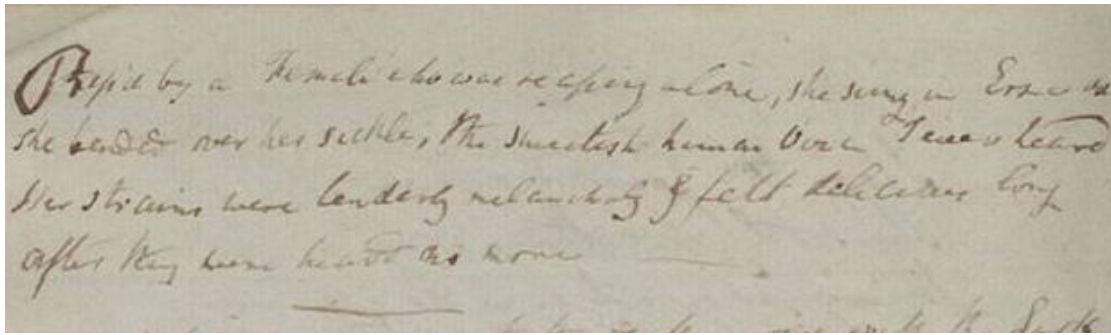 Pass'd by a Female who was reaping alone, she sung in Erse as
she bended over her sickle, the sweetest human Voice I ever heard
Her strains were tenderly melancholy & felt delicious long
after they were heard no more